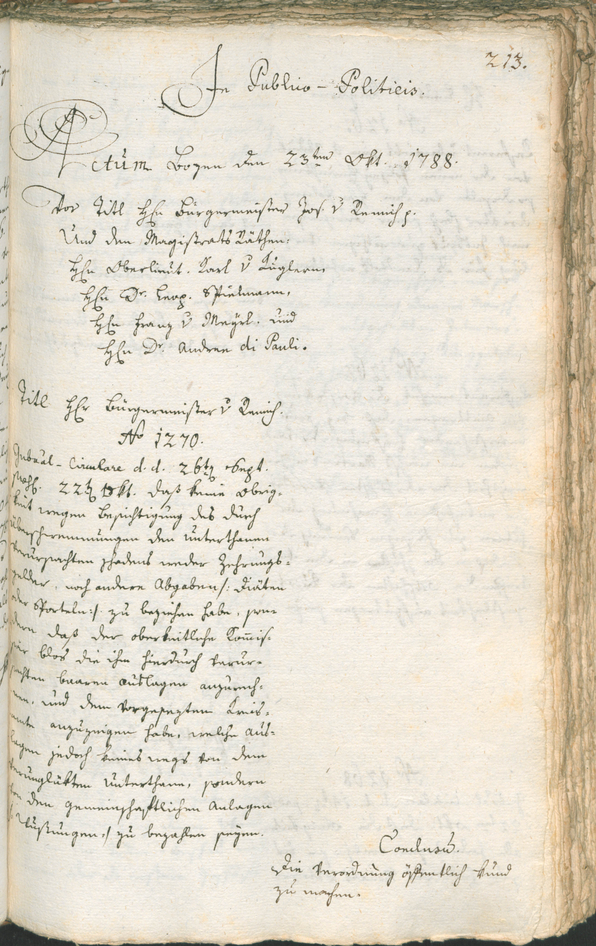 213.
In Publico-Politicis.
Actum Bozen den 23ten Okt. 1788.
Vor Titl Hhn Bürgermeister Jos. v Remich p.
Und den Magistrats Räthen:
Hhn Oberlieut. Karl v Zuglern,
Hhn Dr. Leop. Spielmann,
Hhn Franz v Mayrl. und
Hhn Dr. Andree di Pauli.
Titl Hhr Bürgermeister v Remich.
No 1270.
Gubrial-Circulare d. d. 26ten Sept.
22ten 8bris. daß keine Obrig-
keit wegen Besichtigung des durch
Überschwemmungen den Unterthanen
verursachten Schadens weder Zehrungs-
gelder, noch andere Abgaben /: Diäten
oder Sporteln :/ zu beziehen habe, son-
dern daß der obrigkeitliche Kommis-
sär blos die ihm hierdurch verur-
sachten baaren Auslagen anzurech-
nen, und dem vorgesezten Kreis-
amte anzuzeigen habe, welche Aus-
lagen jedoch keineswegs von dem
verunglükten Unterthane, sondern
von den gemeinschaftlichen Anlagen
/: Wustungen :/ zu bezahlen seyen.
Conclusum.
Die Verordnung öffentlich kund
zu machen.